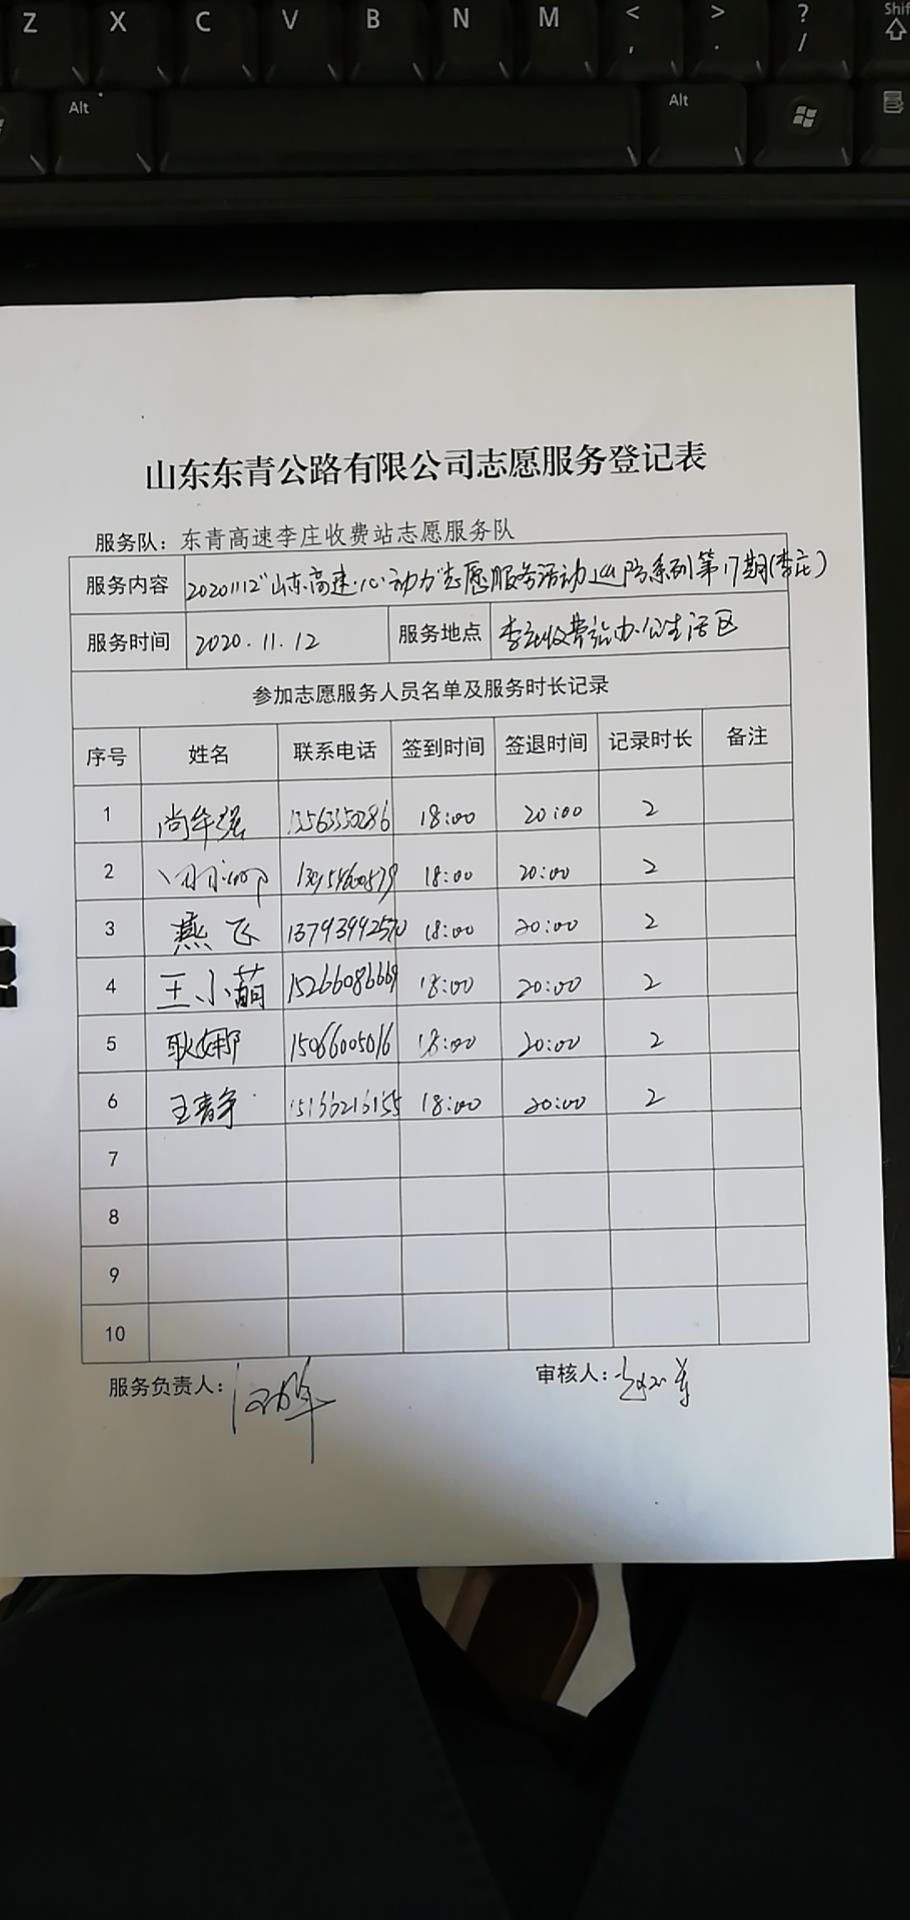 Z X C V B N M < , > . ? / Shif
Alt Alt
山东东青公路有限公司志愿服务登记表
服务队：东青高速李庄收费站志愿服务队
服务内容 20201112"山东高速·心·动力"志愿服务活动巡防系列第17期(李庄)
服务时间 2020.11.12 服务地点 李庄收费站办公生活区
参加志愿服务人员名单及服务时长记录
序号 姓名 联系电话 签到时间 签退时间 记录时长 备注
1 尚华强 13563350286 18:00 20:00 2
2 18:00 20:00 2
3 燕飞 13793992570 18:00 20:00 2
4 王小萌 15266086669 18:00 20:00 2
5 耿娜 15066005016 18:00 20:00 2
6 王青争 18:00 20:00 2
7
8
9
10
服务负责人： 审核人：